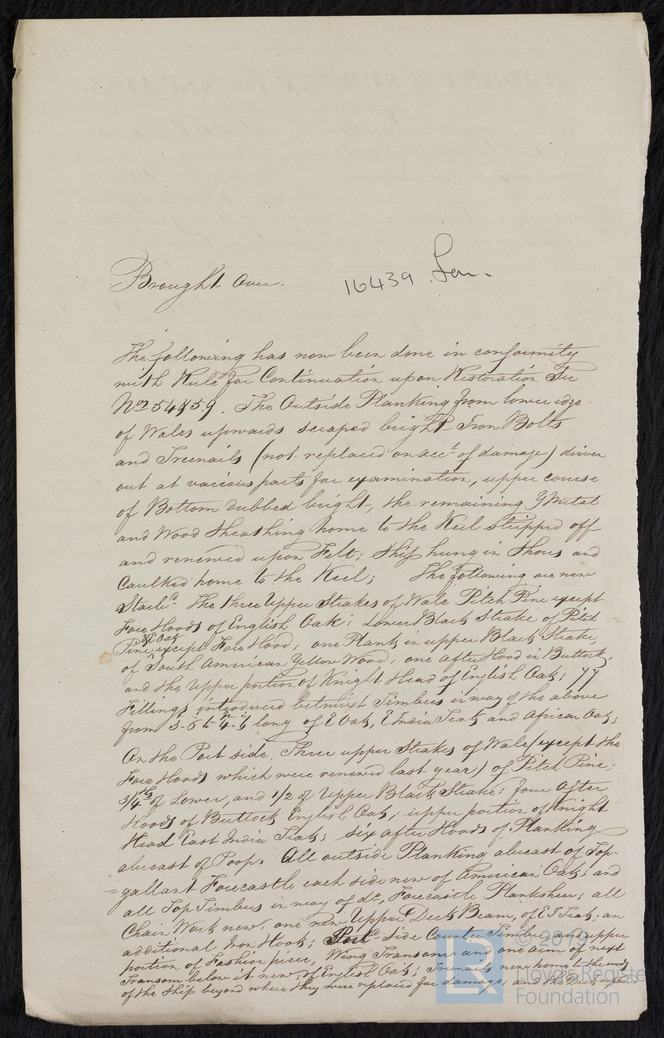 Brought Over. 16439 Lon.
The following has now been done in conformity
with Rule for Continuation upon Restoration See
No 54859. The Outside Planking from lower edge
of Wales upwards scraped bright Iron Bolts
and Treenails (not replaced on acct of damage) driven
out at various parts for examination, upper course
of Bottom dubbed bright, the remaining Y Metal
and Wood Sheathing home to the Keel stripped off
and renewed upon Felt; Ship hung in Shores and
Caulked home to the Keel; The following are new
Starbd The three Upper Strakes of Wale Pitch Pine except
Fore Hoods of English Oak; Lower Black Strake of Pitch
Pine, except Fore Hood, E Oak, one Plank in upper Black Strake
of South American Yellow Wood, one after Hood in Buttock
and the Upper portion of Knight Head of English Oak; 77
Fillings introduced betwixt Timbers in way of the above
from long of E Oak, E India Teak and African Oak;
On the Port side, Three upper Strakes of Wale (except the
Fore Hoods which were renewed last year) of Pitch Pine;
3/4ths of Lower, and 1/2 of Upper Black Strake; four After
Hoods of Buttock English Oak, upper portion of Knight
Head East India Teak; six after Hoods of Planking
abreast of Poop. All outside Planking abreast of Top-
=gallant Forecastle each side new of American Oak; and
all Top Timbers in way of do, Forecastle Planksheer; all
Chain Work new, one new Upper Deck Beam, of E I Teak; an
additional Iron Hook; Port side Counter Timber and upper
portion of Fashion piece, Wing Transom and one arm of next
Transom below it new of English Oak; Treenails new home to the
of the Ship beyond where they were replaced for damage; and the
© 2019
Lloyd's Register
Foundation
LR